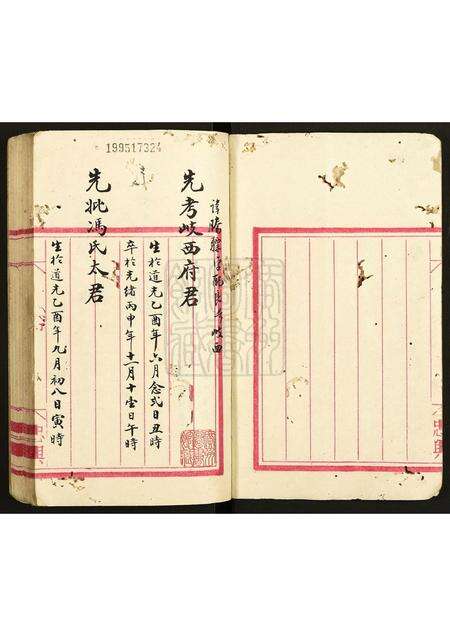 199517324
諱 字 岐西
先考岐西府君
生於道光乙酉年六月念弍日丑時
卒於光緒丙申年十一月十壹日午時
先妣馮氏太君
生於道光乙酉年九月初八日寅時